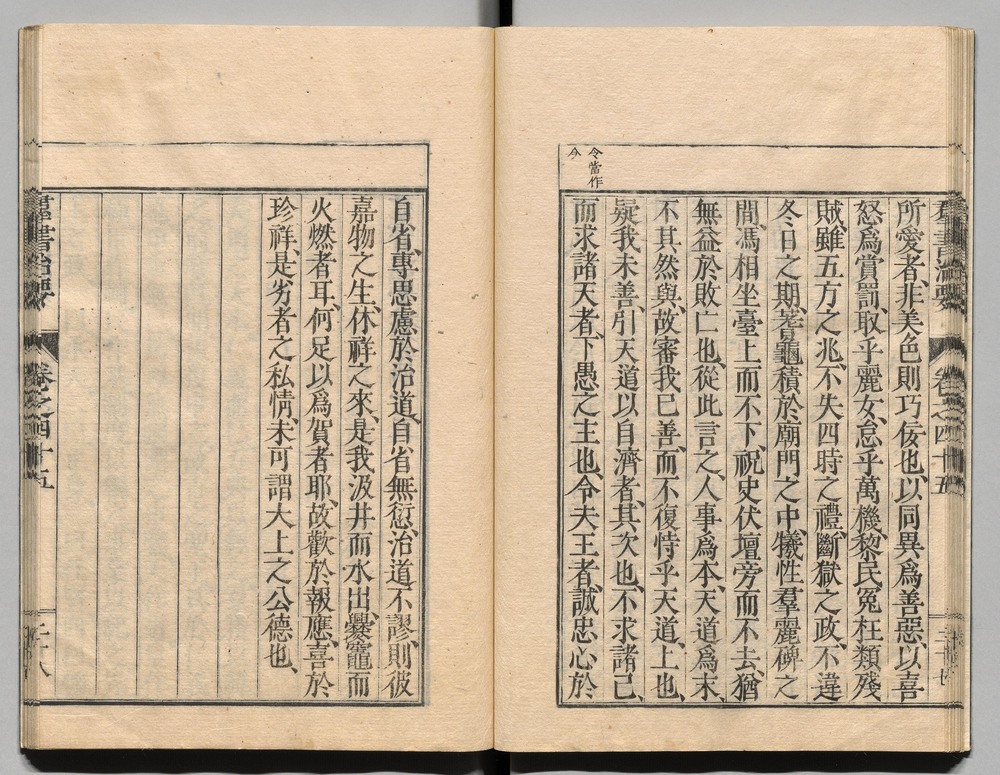 群書治要 卷之四十五 三十七
所愛者、非美色則巧佞也、以同異爲善惡、以喜
怒爲賞罰、取乎麗女、怠乎萬機、黎民冤枉類殘
賊、雖五方之兆、不失四時之禮、斷獄之政、不違
冬日之期、蓍龜積於廟門之中、犧牲羣麗碑之
間、馮相坐臺上而不下、祝史伏壇旁而不去、猶
無益於敗亡也、從此言之、人事爲本、天道爲末、
不其然與、故審我已善、而不復恃乎天道、上也、
疑我未善、引天道以自濟者、其次也、不求諸己、
而求諸天者、下愚之主也、令夫王者、誠忠心於
令當作
今
自省、專思慮於治道、自省無愆、治道不謬、則彼
嘉物之生、休祥之來、是我汲井而水出、爨竈而
火燃者耳、何足以爲賀者耶、故歡於報應、喜於
珍祥、是劣者之私情、未可謂大上之公德也、
群書治要 卷之四十五 三十八